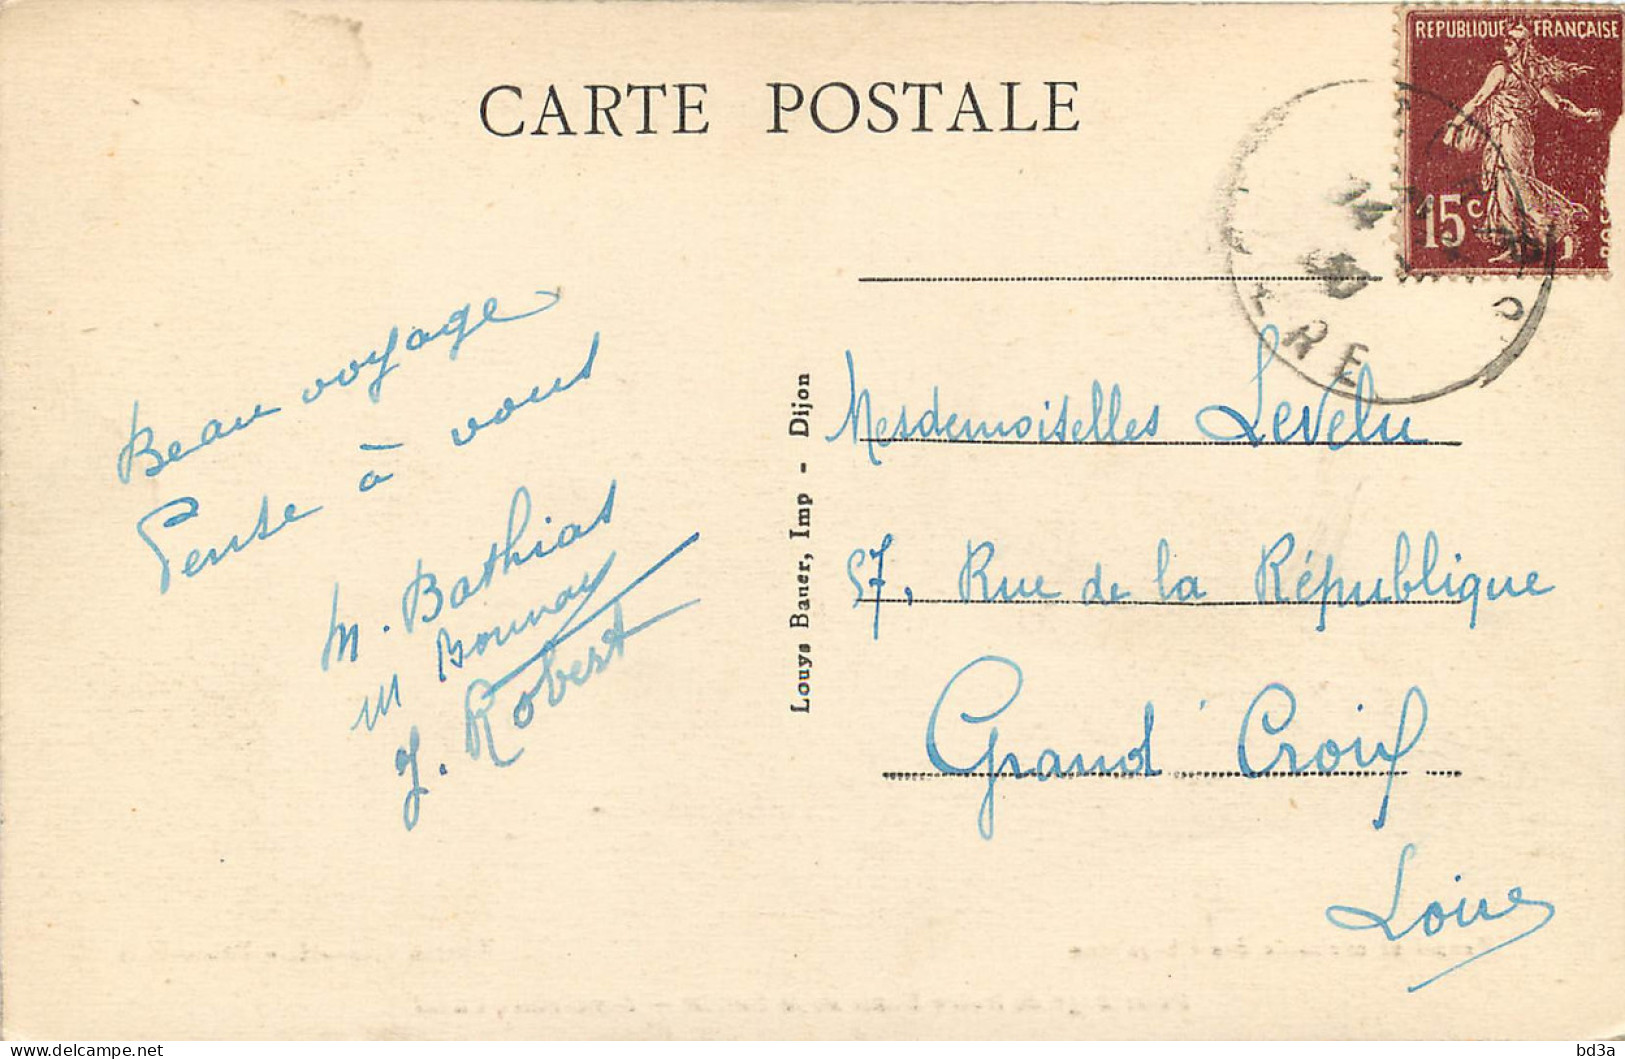 CARTE POSTALE
RÉPUBLIQUE FRANÇAISE
15c
POSTES
14
ERE
Beau voyage
Pense à vous
M. Bathias
M Bonnay
J. Robert
Louys Bauer, Imp - Dijon
Mesdemoiselles Levelu
57, Rue de la République
Grand Croix
Loire
bd3a